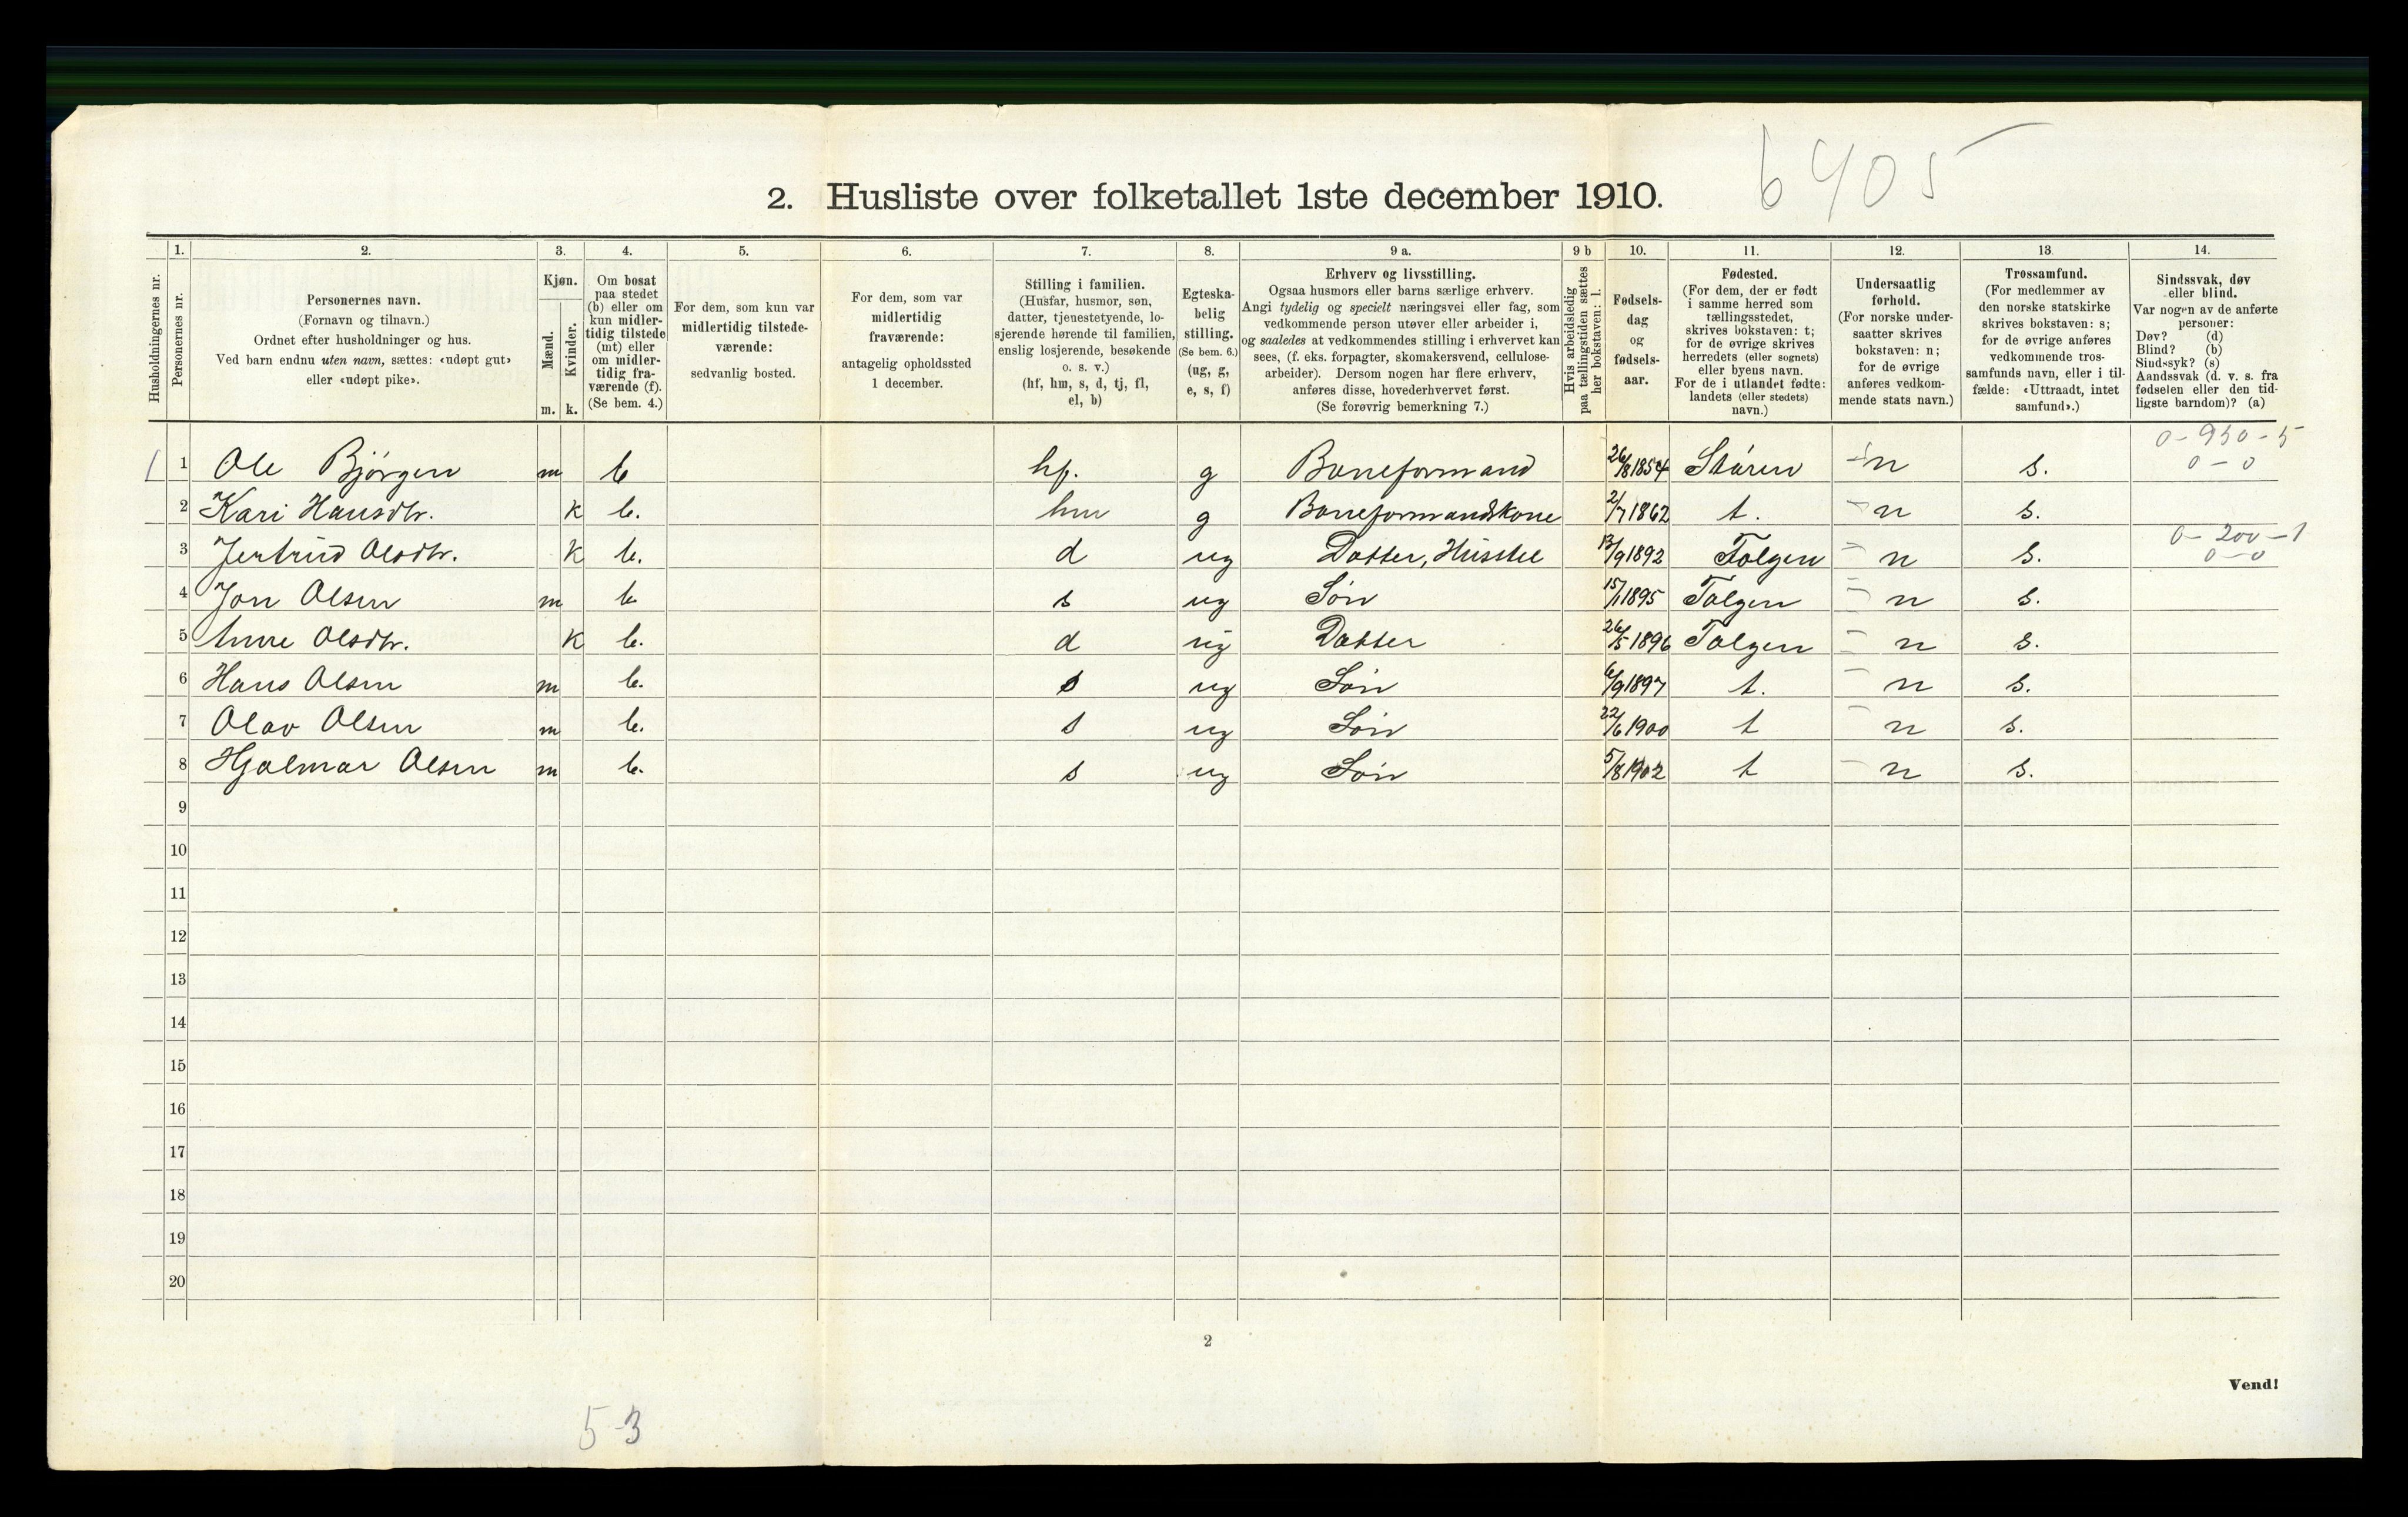 6405
2. Husliste over folketallet 1ste december 1910.
Husholdningernes nr.
1. Personernes nr.
2. Personernes navn. (Fornavn og tilnavn.) Ordnet efter husholdninger og hus. Ved barn endnu uten navn, sættes: «udøpt gut» eller «udøpt pike».
3. Kjøn. Mænd. m. Kvinder. k.
4. Om bosat paa stedet (b) eller om kun midlertidig tilstede (mt) eller om midlertidig fraværende (f). (Se bem. 4.)
5. For dem, som kun var midlertidig tilstedeværende: sedvanlig bosted.
6. For dem, som var midlertidig fraværende: antagelig opholdssted 1 december.
7. Stilling i familien. (Husfar, husmor, søn, datter, tjenestetyende, losjerende hørende til familien, enslig losjerende, besøkende o. s. v.) (hf, hm, s, d, tj, fl, el, b)
8. Egteskabelig stilling. (Se bem. 6.) (ug, g, e, s, f)
9 a. Erhverv og livsstilling. Ogsaa husmors eller barns særlige erhverv. Angi tydelig og specielt næringsvei eller fag, som vedkommende person utøver eller arbeider i, og saaledes at vedkommendes stilling i erhvervet kan sees, (f. eks. forpagter, skomakersvend, cellulosearbeider). Dersom nogen har flere erhverv, anføres disse, hovederhvervet først. (Se forøvrig bemerkning 7.)
9 b Hvis arbeidsledig paa tællingstiden sættes her bokstaven: l.
10. Fødselsdag og fødselsaar.
11. Fødested. (For dem, der er født i samme herred som tællingsstedet, skrives bokstaven: t; for de øvrige skrives herredets (eller sognets) eller byens navn. For de i utlandet fødte: landets (eller stedets) navn.)
12. Undersaatlig forhold. (For norske undersaatter skrives bokstaven: n; for de øvrige anføres vedkommende stats navn.)
13 Trossamfund. (For medlemmer av den norske statskirke skrives bokstaven: s; for de øvrige anføres vedkommende trossamfunds navn, eller i tilfælde: «Uttraadt, intet samfund».)
14. Sindssvak, døv eller blind. Var nogen av de anførte personer: Døv? (d) Blind? (b) Sindssyk? (s) Aandssvak (d. v. s. fra fødselen eller den tidligste barndom)? (a)
0-950-5
1 1 Ole Bjørgen m b hf. g Baneformand 26/8 1854 Støren n s. 0-0
2 Kari Hansdtr. k b. hm g Baneformandskone 2/7 1862 t. n s.
0-200-1
3 Jertrud Olsdtr. k b. d ug Datter, Husstel 13/9 1892 Tolgen n s. 0-0
4 Jon Olsen m b s ug Søn 15/1 1895 Tolgen n s.
5 Anne Olsdtr. k b. d ug Datter 26/5 1896 Tolgen n s.
6 Hans Olsen m b. s ug Søn 6/9 1897 t. n s.
7 Olav Olsen m b. s ug Søn 22/6 1900 t n s.
8 Hjalmar Olsen m b. s ug Søn 5/8 1902 t n s.
9
10
11
12
13
14
15
16
17
18
19
20
2
Vend!
5-3